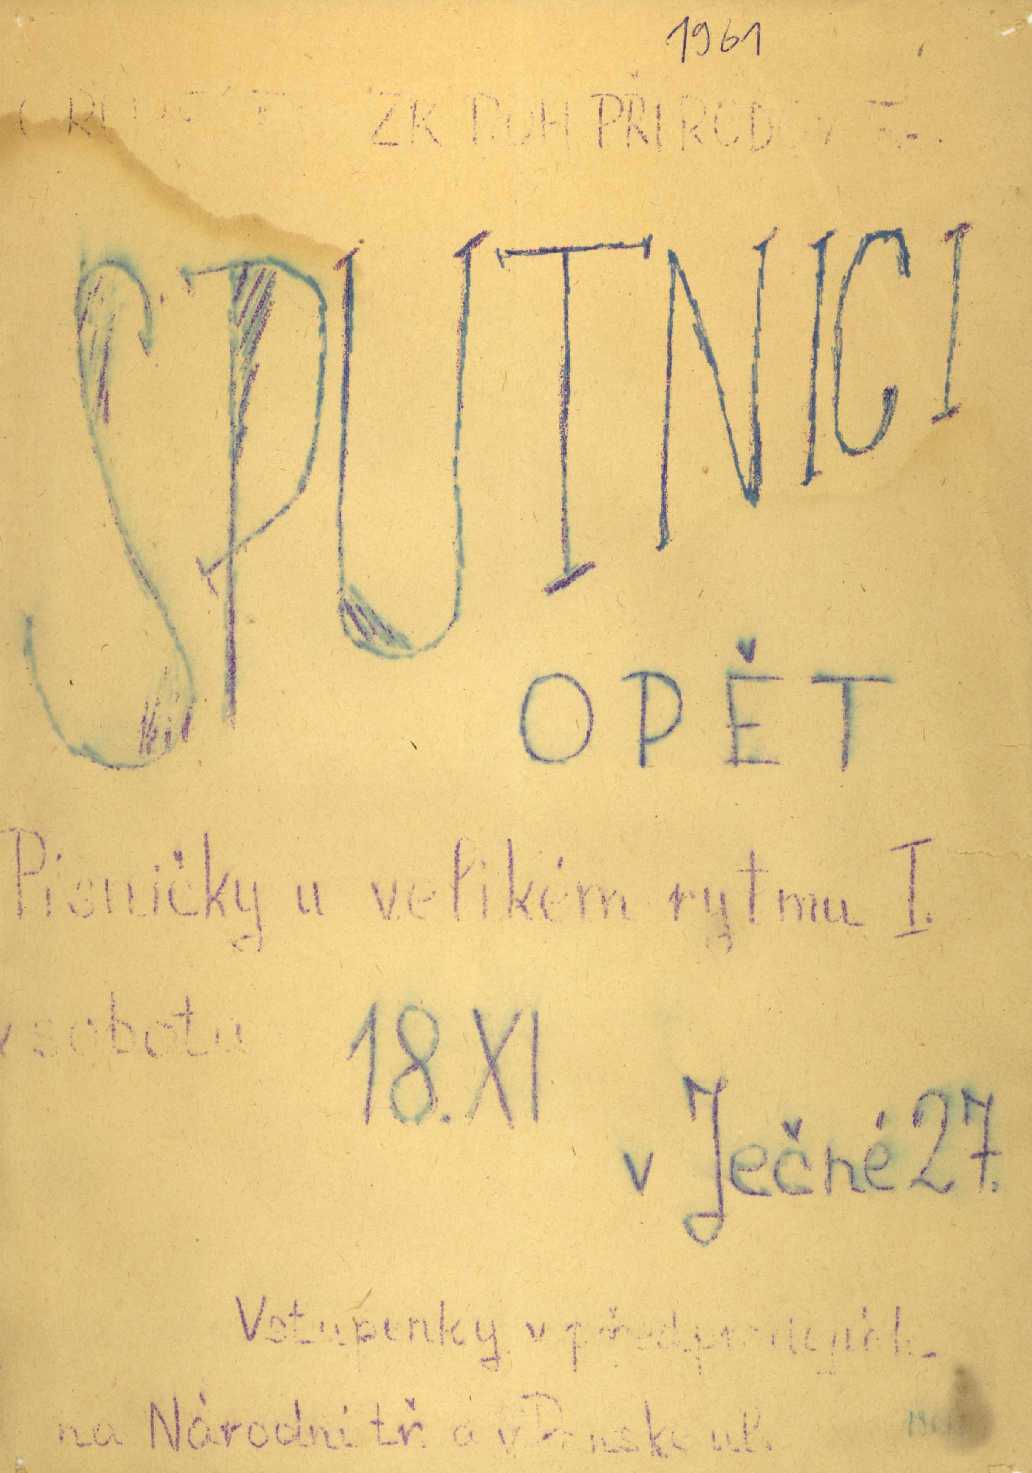 1961
ZK ROH PŘÍRODOV
SPUTNICI
OPĚT
Písničky u velikém rytmu I.
v sobotu 18.XI
v Ječné 27.
Vstupenky v předprodejích
na Národní tř. a v ul.